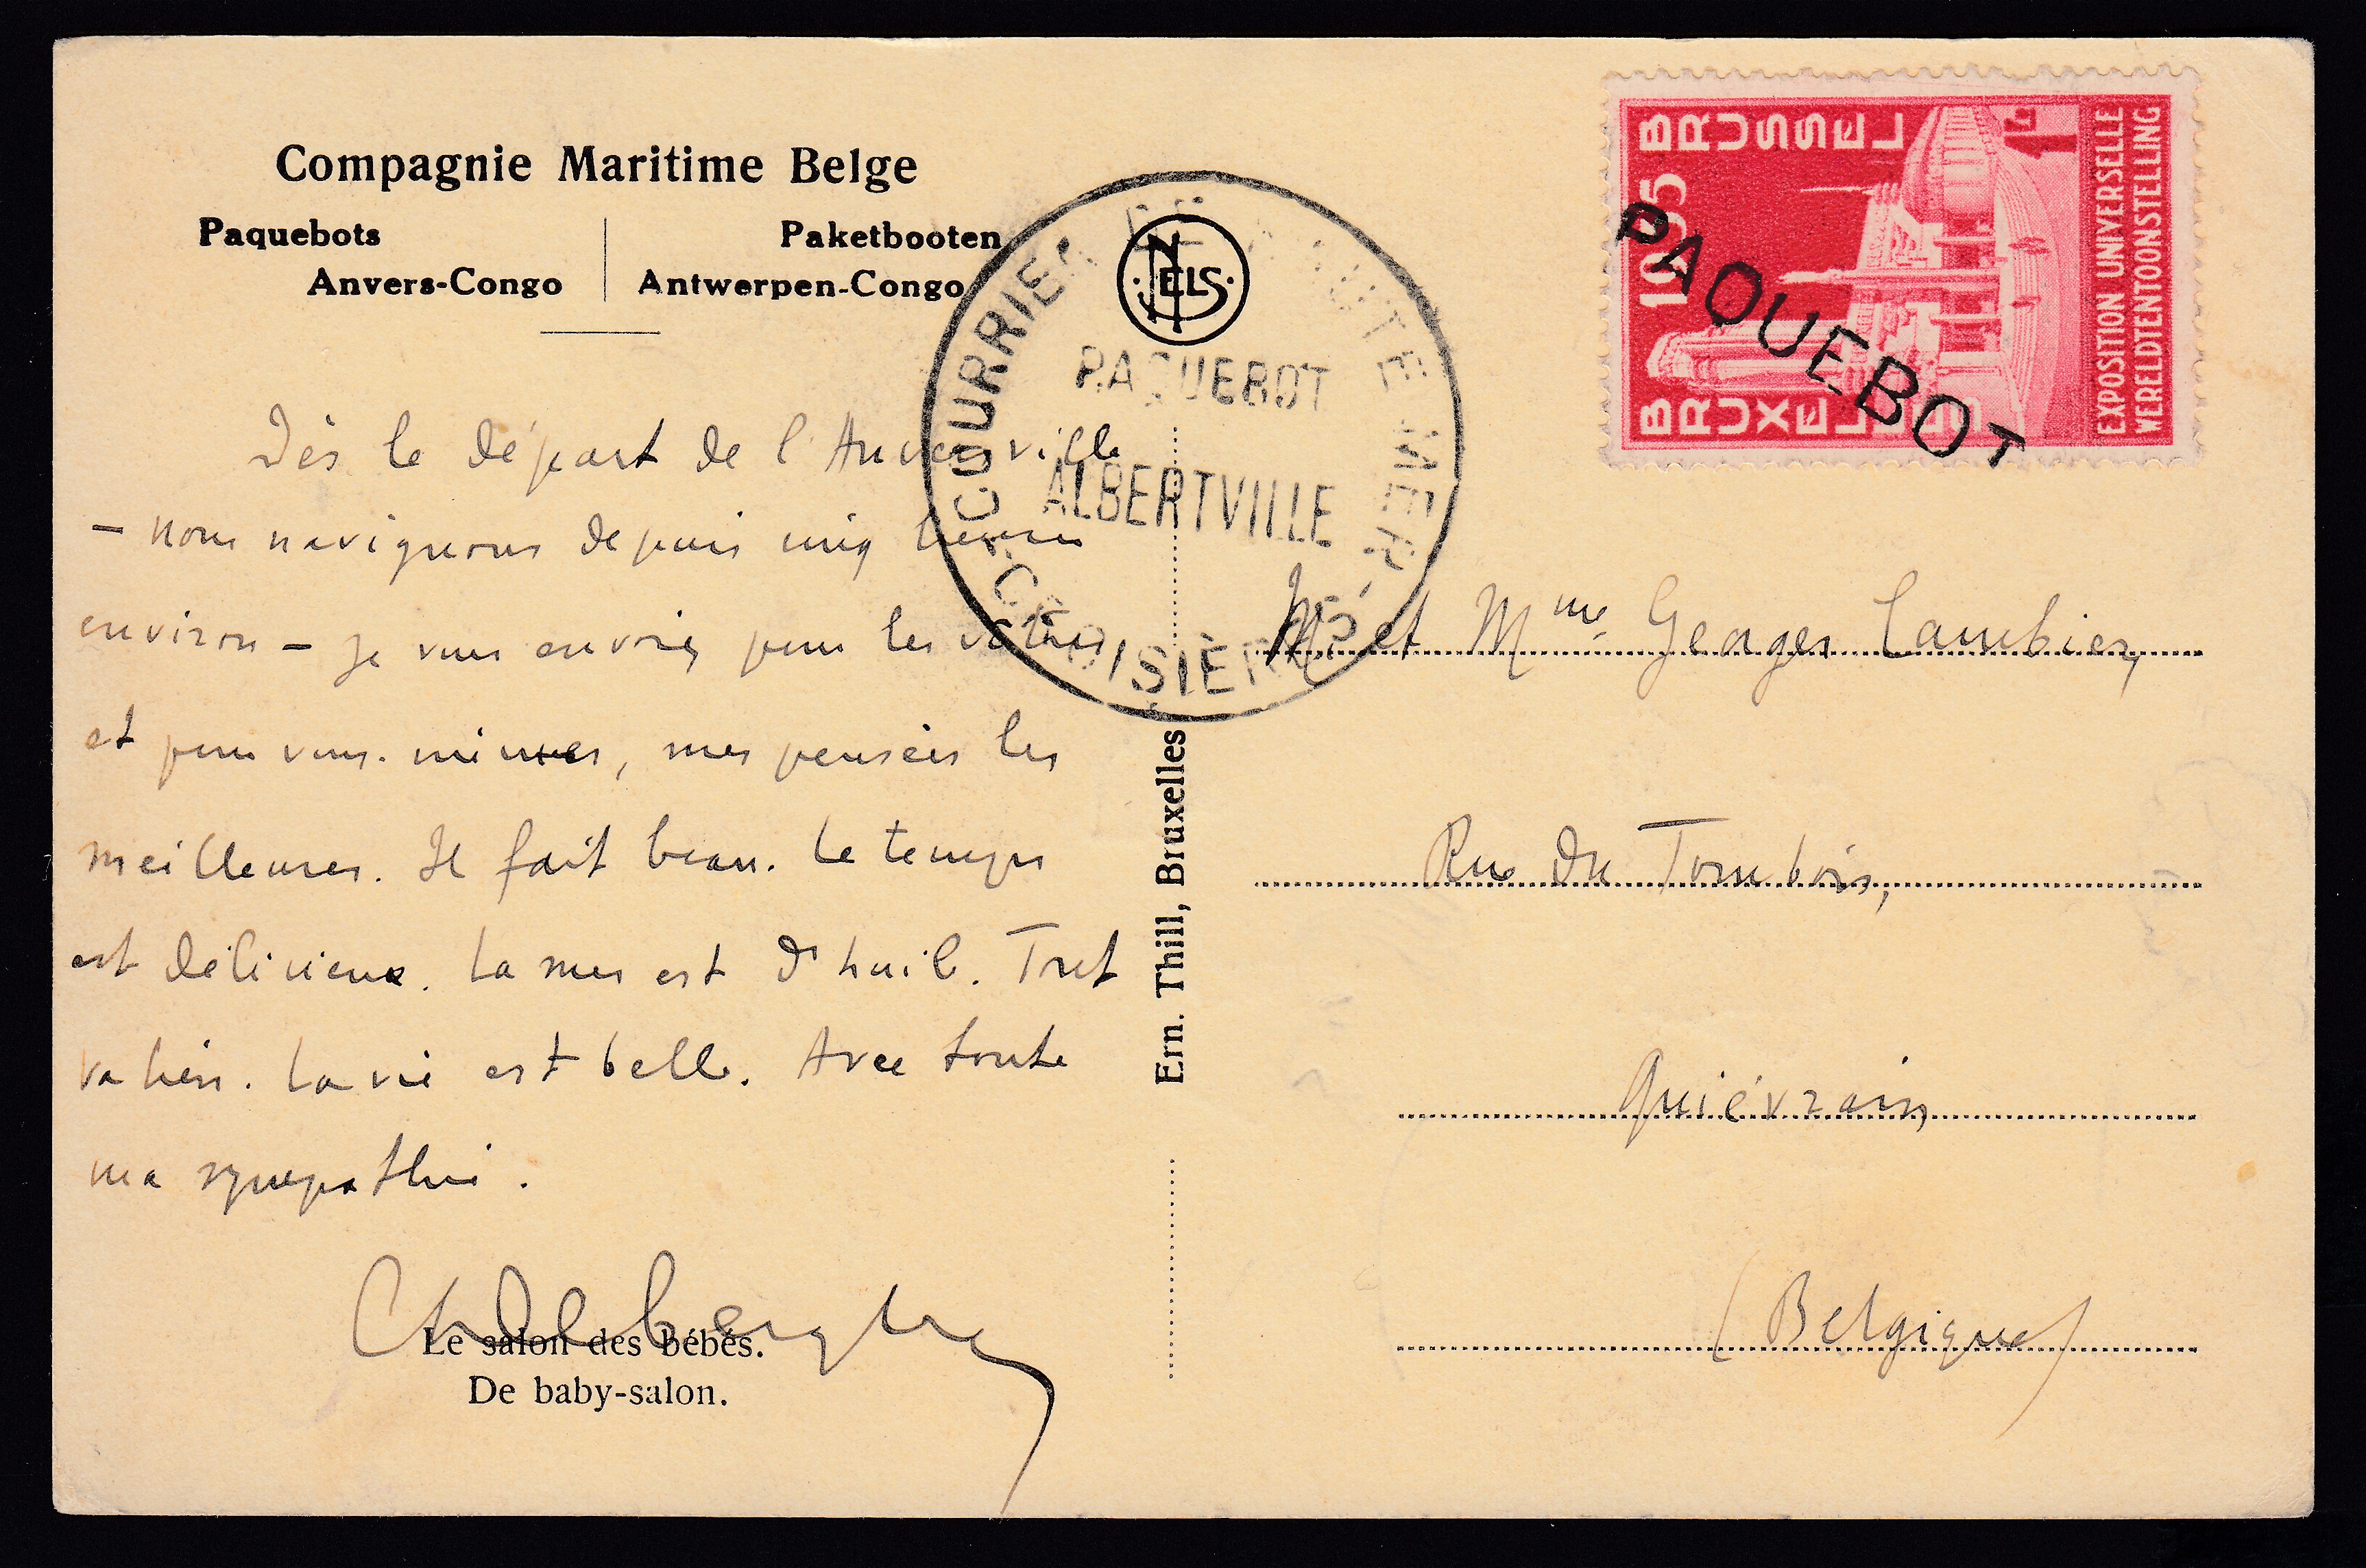 Compagnie Maritime Belge
Paquebots
Anvers-Congo
Paketbooten
Antwerpen-Congo
Dès le départ de l'Anversville
- nous naviguons depuis cinq heures
environ - je vous envoie, pour les vôtres
et pour vous-mêmes, mes pensées les
meilleures. Il fait beau. Le temps
est délicieux. La mer est d'huile. Tout
va bien. La vie est belle. Avec toute
ma sympathie.
Le salon des bébés.
De baby-salon.
NELS
Ern. Thill, Bruxelles
COURRIER DE HAUTE MER
PAQUEBOT
ALBERTVILLE
CROISIÈRES
BRUSSEL
1935
BRUXELLES
EXPOSITION UNIVERSELLE
WERELDTENTOONSTELLING
1F
PAQUEBOT
M. et Mme Georges Cambier,
Rue du Tombois,
Quiévrain
(Belgique)